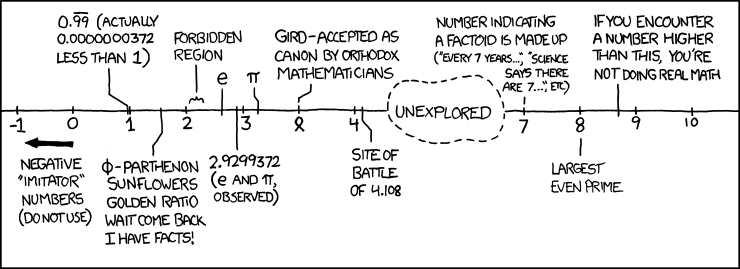 0.99̅ (ACTUALLY
0.0000000372
LESS THAN 1)
FORBIDDEN
REGION
e
π
GIRD-ACCEPTED AS
CANON BY ORTHODOX
MATHEMATICIANS
NUMBER INDICATING
A FACTOID IS MADE UP
("EVERY 7 YEARS...", "SCIENCE
SAYS THERE
ARE 7...", ETC)
IF YOU ENCOUNTER
A NUMBER HIGHER
THAN THIS, YOU'RE
NOT DOING REAL MATH
UNEXPLORED
-1 0 1 2 3 4 7 8 9 10
NEGATIVE
"IMITATOR"
NUMBERS
(DO NOT USE)
ϕ-PARTHENON
SUNFLOWERS
GOLDEN RATIO
WAIT COME BACK
I HAVE FACTS!
2.9299372
(e AND π,
OBSERVED)
SITE OF
BATTLE
OF 4.108
LARGEST
EVEN PRIME